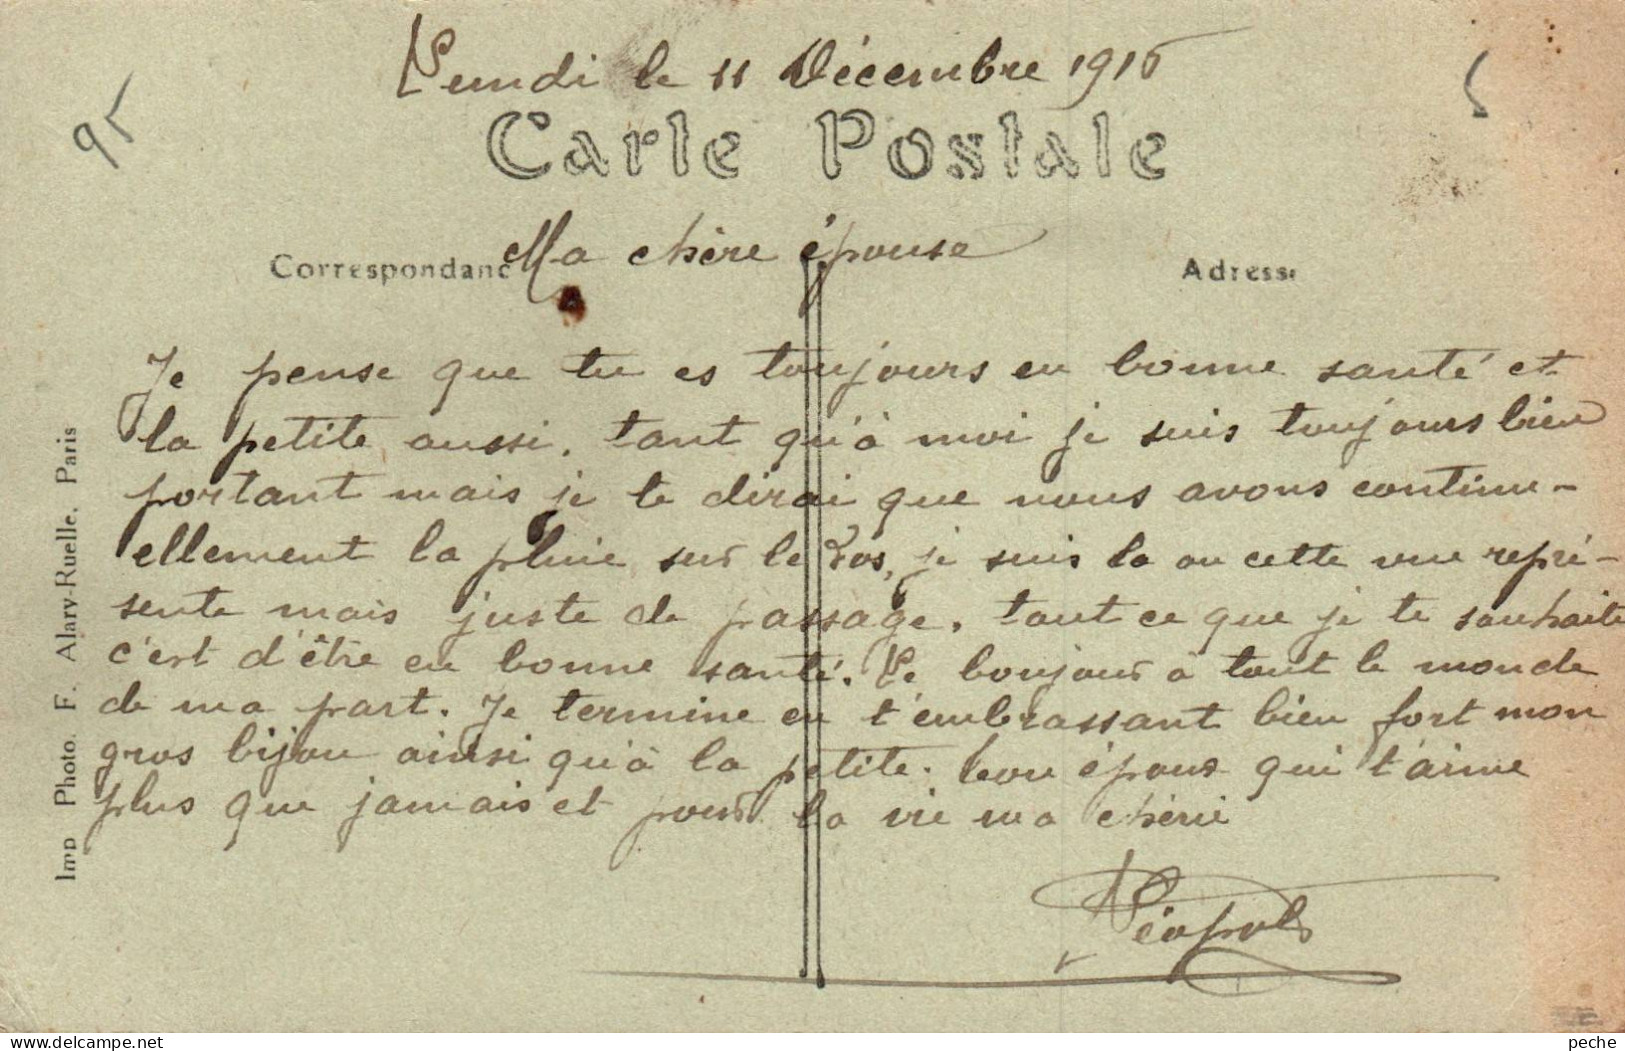 Lundi le 11 Décembre 1916
95
Carte Postale
Ma chère épouse
Correspondanc
Adresse
Je pense que tu es toujours en bonne santé et
la petite aussi, tant qu'à moi je suis toujours bien
portant mais je te dirai que nous avons continu-
ellement la pluie sur le dos, je suis la ou cette vue repré-
sente mais juste de passage, tout ce que je te souhaite
c'est d'être en bonne santé. Le bonjour à tout le monde
de ma part. Je termine en t'embrassant bien fort mon
gros bijou ainsi qu'à la petite. ton épous qui t'aime
plus que jamais et pour la vie ma chérie
Léopold
Imp Photo. F. Alary-Ruelle, Paris
peche